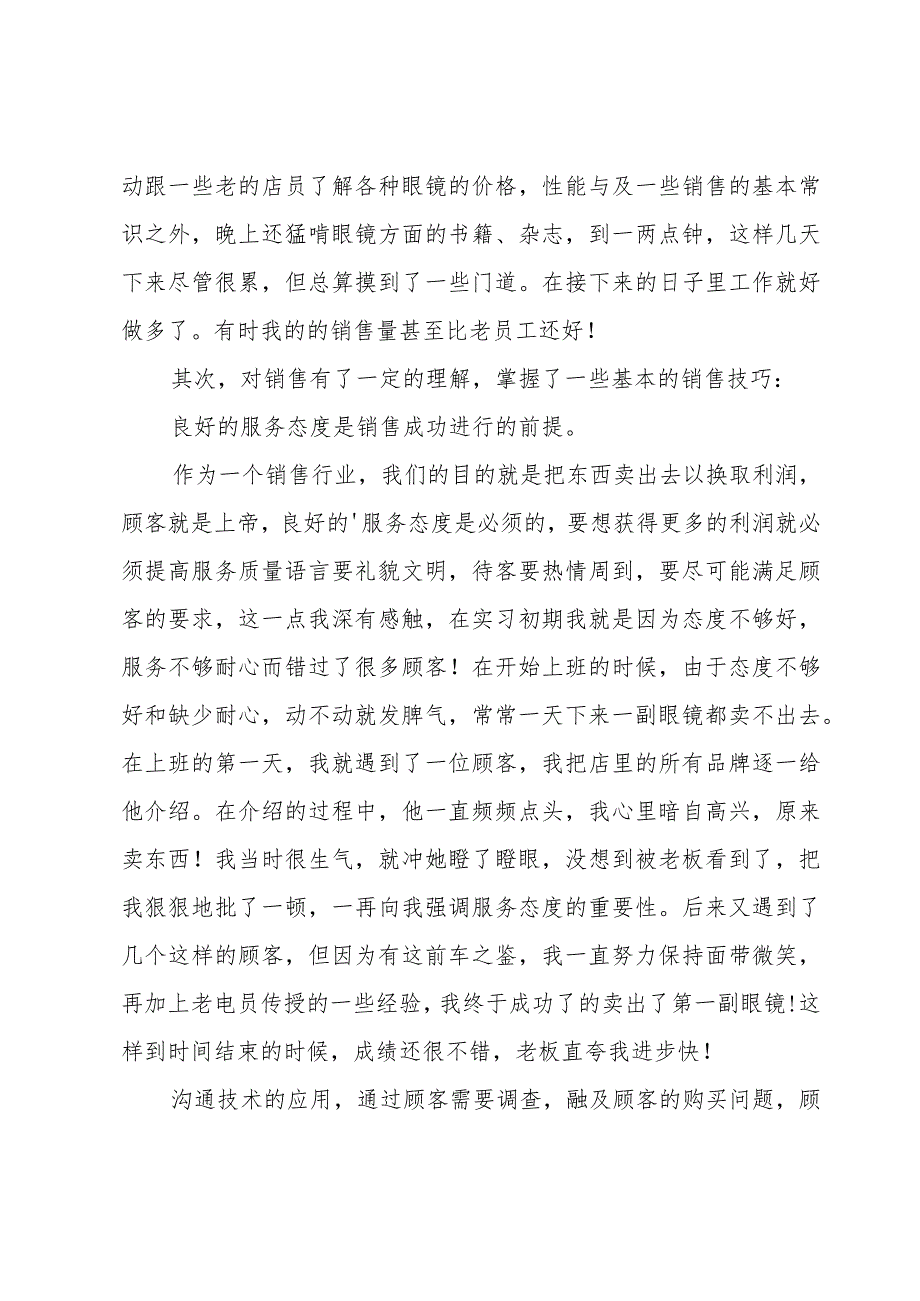 动跟一些老的店员了解各种眼镜的价格，性能与及一些销售的基本常
识之外，晚上还猛啃眼镜方面的书籍、杂志，到一两点钟，这样几天
下来尽管很累，但总算摸到了一些门道。在接下来的日子里工作就好
做多了。有时我的的销售量甚至比老员工还好！
其次，对销售有了一定的理解，掌握了一些基本的销售技巧：
良好的服务态度是销售成功进行的前提。
作为一个销售行业，我们的目的就是把东西卖出去以换取利润，
顾客就是上帝，良好的'服务态度是必须的，要想获得更多的利润就必
须提高服务质量语言要礼貌文明，待客要热情周到，要尽可能满足顾
客的要求，这一点我深有感触，在实习初期我就是因为态度不够好，
服务不够耐心而错过了很多顾客！在开始上班的时候，由于态度不够
好和缺少耐心，动不动就发脾气，常常一天下来一副眼镜都卖不出去。
在上班的第一天，我就遇到了一位顾客，我把店里的所有品牌逐一给
他介绍。在介绍的过程中，他一直频频点头，我心里暗自高兴，原来
卖东西！我当时很生气，就冲她瞪了瞪眼，没想到被老板看到了，把
我狠狠地批了一顿，一再向我强调服务态度的重要性。后来又遇到了
几个这样的顾客，但因为有这前车之鉴，我一直努力保持面带微笑，
再加上老电员传授的一些经验，我终于成功了的卖出了第一副眼镜！这
样到时间结束的时候，成绩还很不错，老板直夸我进步快！
沟通技术的应用，通过顾客需要调查，融及顾客的购买问题，顾